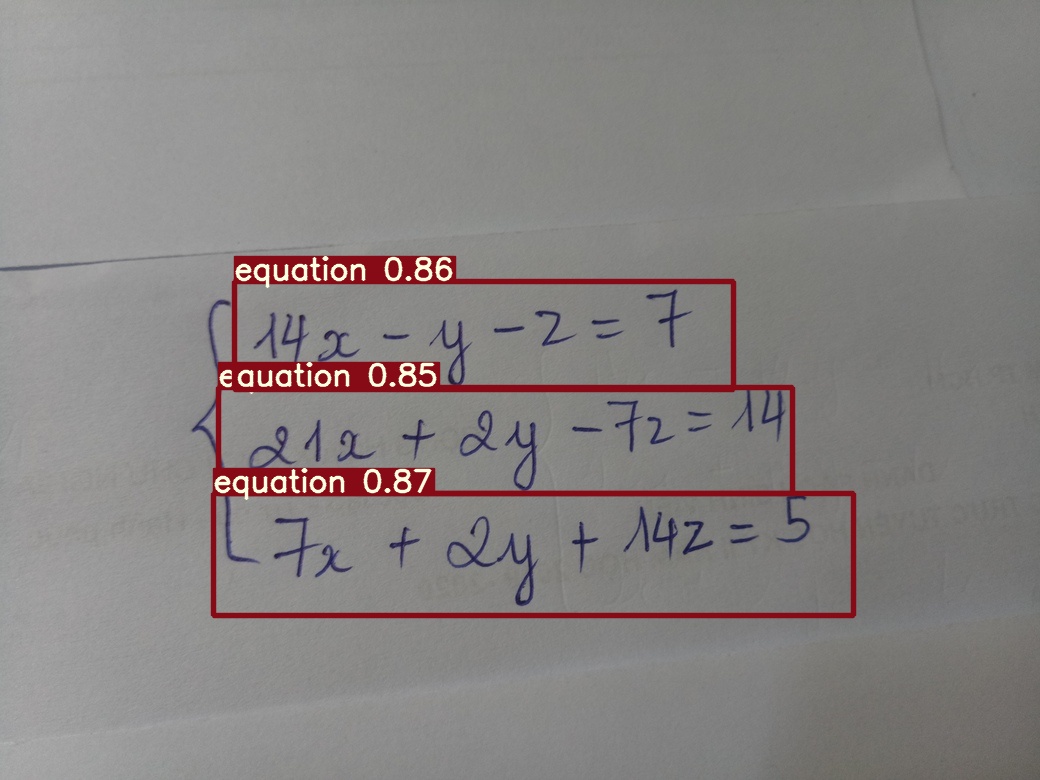 equation 0.86
14x - y - z = 7
equation 0.85
21x + 2y - 7z = 14
equation 0.87
7x + 2y + 14z = 5